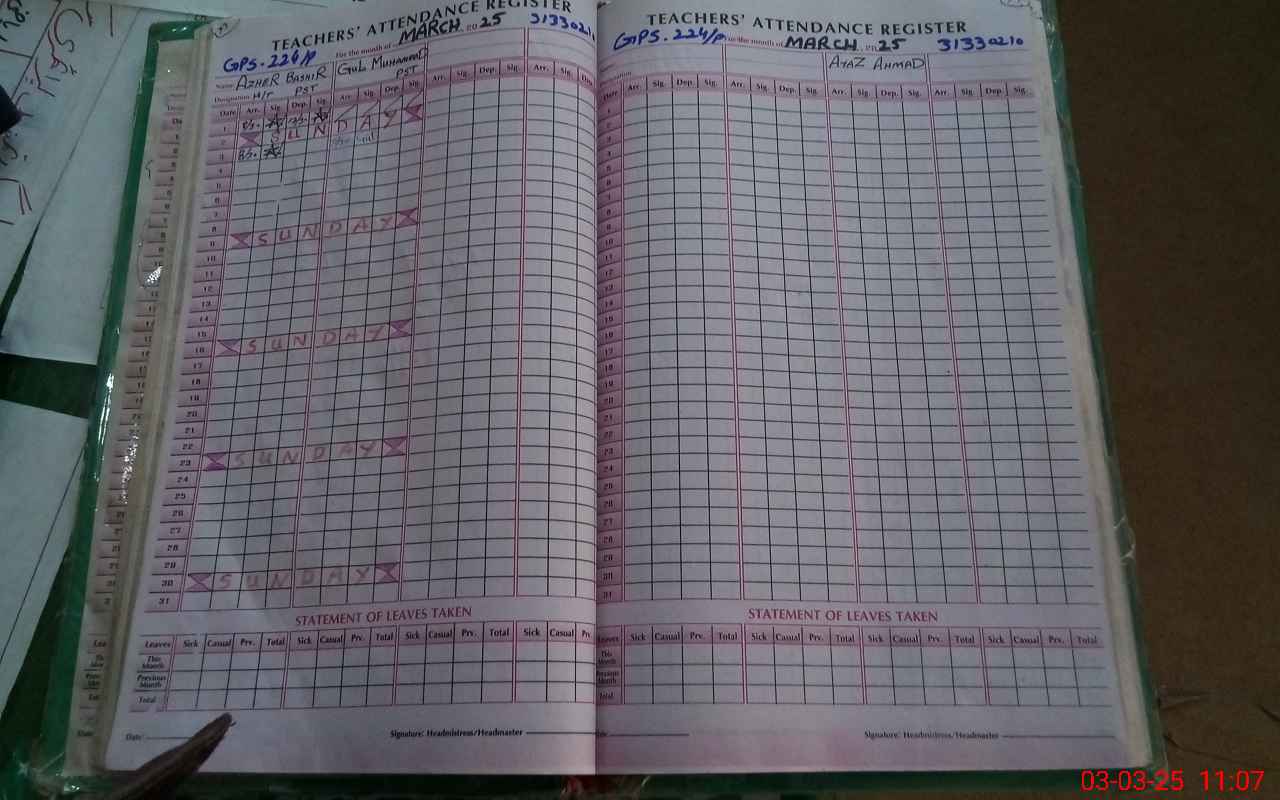 TEACHERS' ATTENDANCE REGISTER
GPS. 224/P For the month of MARCH 2025 31330210
Name AZHER BASHIR GUL MUHAMMAD
Designation H/T PST PST
Date Arr. Sig. Dep. Sig. Arr. Sig. Dep. Sig. Arr. Sig. Dep. Sig. Arr. Sig. Dep.
1
2 SUNDAY
3
4
5
6
7
8
9 SUNDAY
10
11
12
13
14
15
16 SUNDAY
17
18
19
20
21
22
23 SUNDAY
24
25
26
27
28
29
30 SUNDAY
31
STATEMENT OF LEAVES TAKEN
Leaves Sick Casual Prv. Total Sick Casual Prv. Total Sick Casual Prv. Total Sick Casual Prv.
This Month
Previous Month
Total
Date: Signature: Headmistress/Headmaster
TEACHERS' ATTENDANCE REGISTER
GPS. 224/P For the month of MARCH 2025 31330210
AYAZ AHMAD
Date Arr. Sig. Dep. Sig. Arr. Sig. Dep. Sig. Arr. Sig. Dep. Sig. Arr. Sig. Dep. Sig.
1
2
3
4
5
6
7
8
9
10
11
12
13
14
15
16
17
18
19
20
21
22
23
24
25
26
27
28
29
30
31
STATEMENT OF LEAVES TAKEN
Leaves Sick Casual Prv. Total Sick Casual Prv. Total Sick Casual Prv. Total Sick Casual Prv. Total
This Month
Previous Month
Total
Signature: Headmistress/Headmaster
03-03-25 11:07